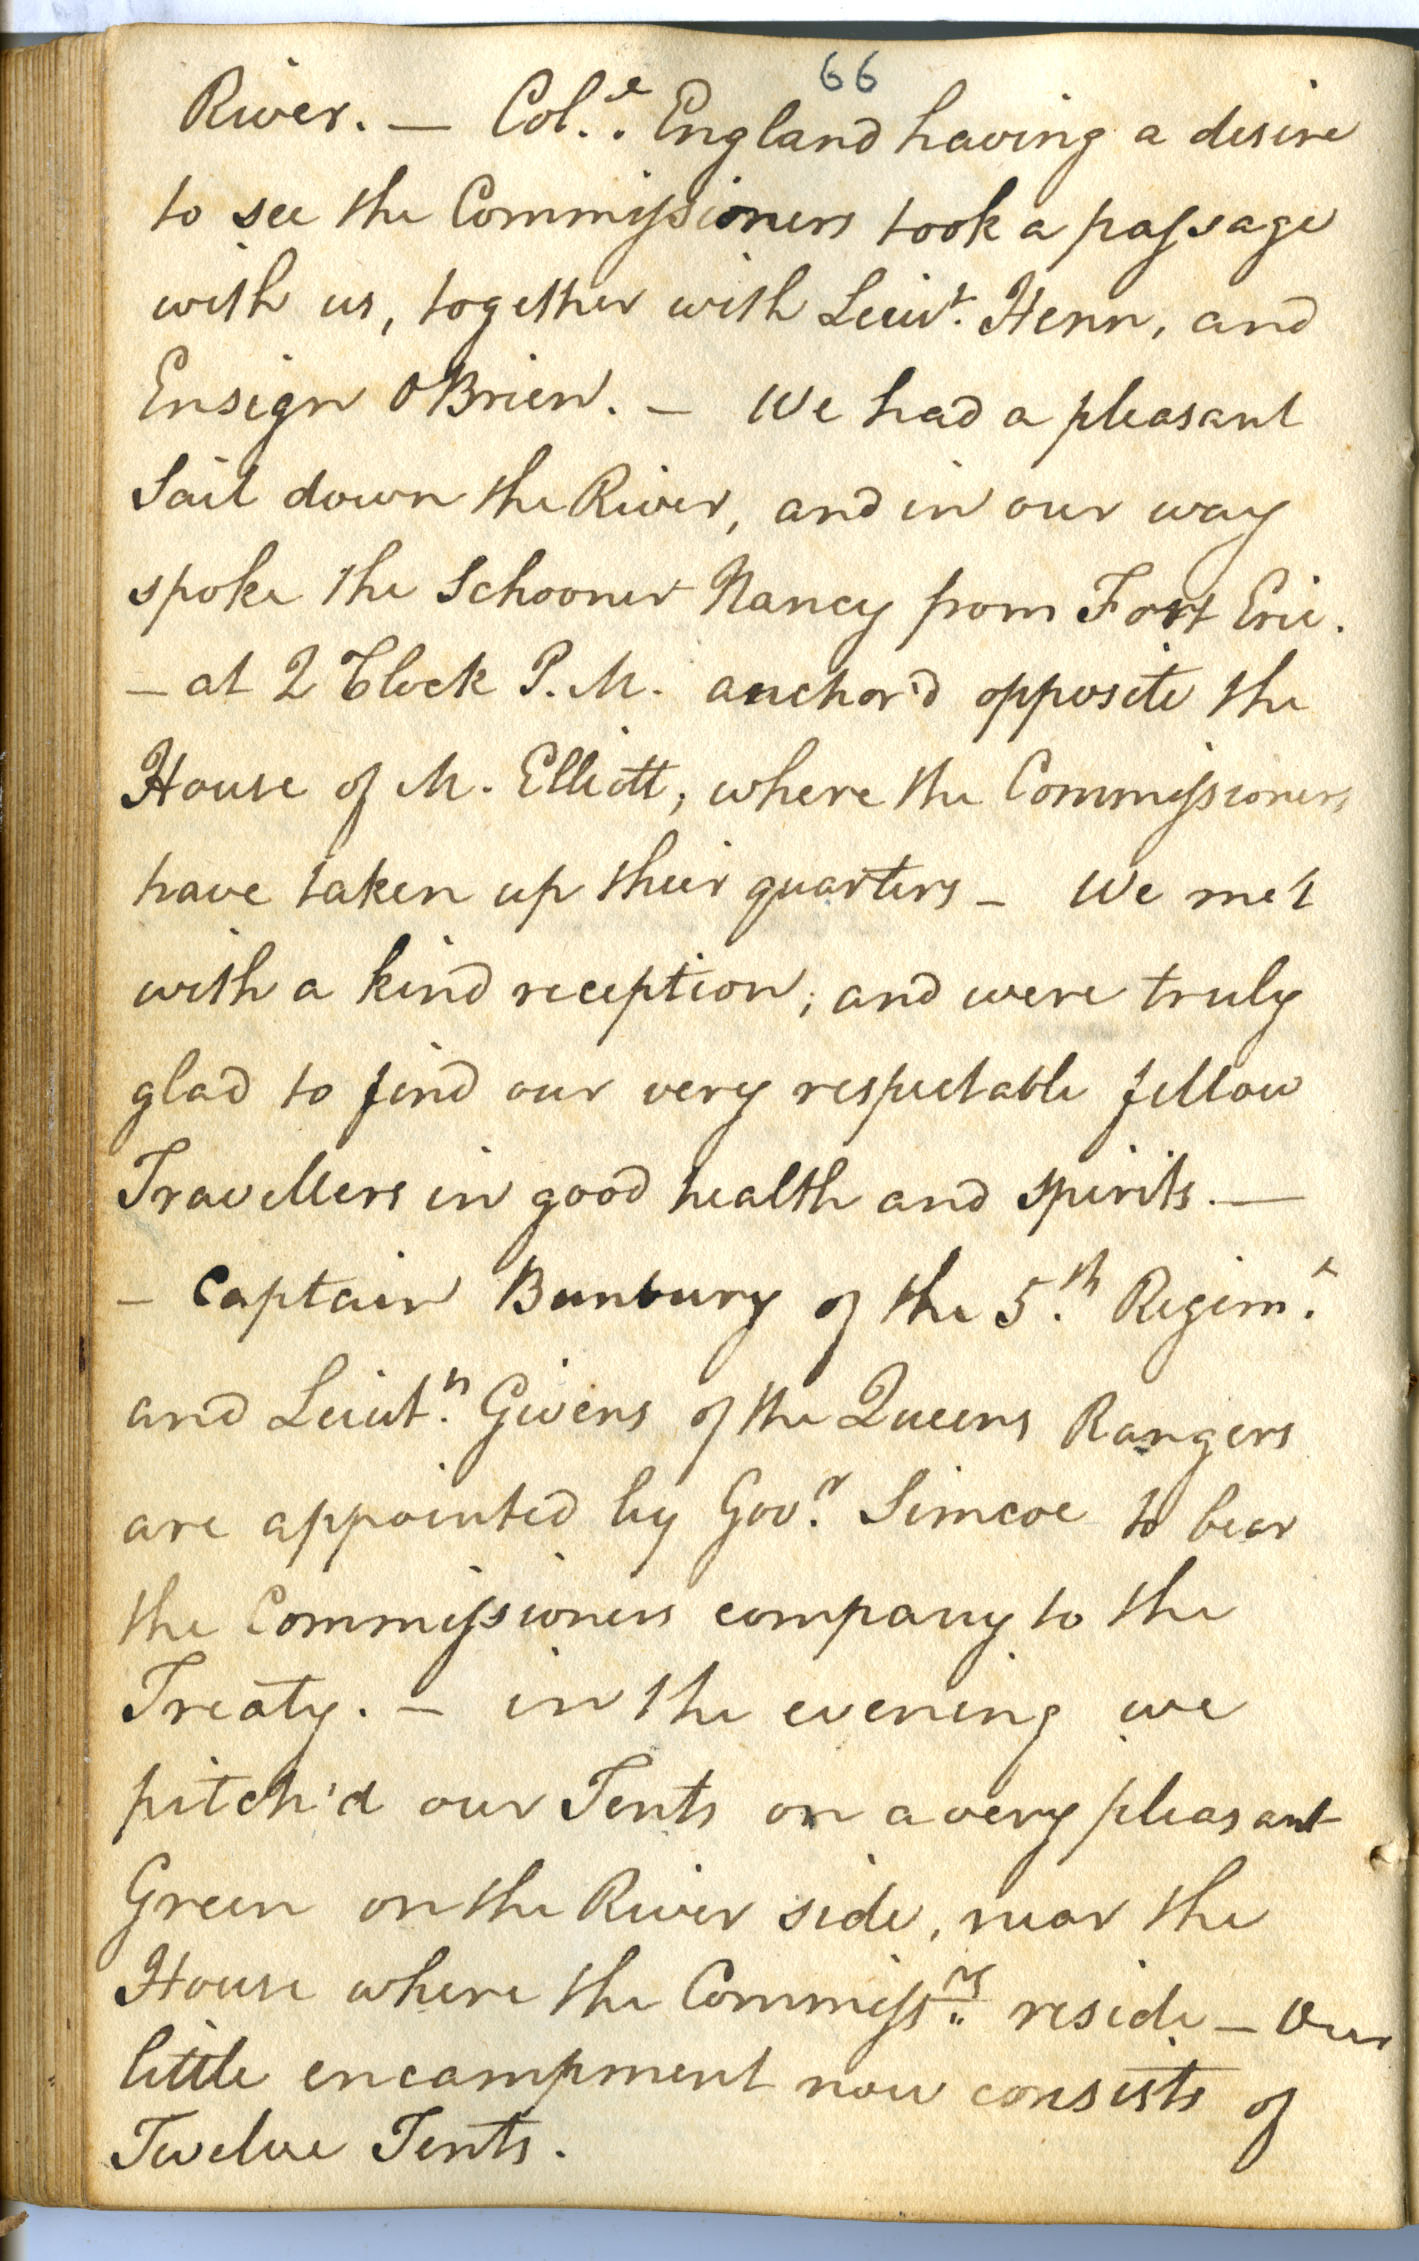 66
River. — Col.e England having a desire
to see the Commissioners took a passage
with us, together with Lieut. Henn, and
Ensign O'Brien. — We had a pleasant
Sail down the River, and in our way
spoke the Schooner Nancy from Fort Erie.
— at 2 Clock P.M. anchor'd opposite the
House of M. Elliott, where the Commissioners
have taken up their quarters — We met
with a kind reception, and were truly
glad to find our very respectable fellow
Travellers in good health and spirits. —
— Captain Bunbury of the 5.th Regim.t
and Lieut.n Givens of the Queens Rangers
are appointed by Gov.r Simcoe to bear
the Commissioners company to the
Treaty. — in the evening we
pitch'd our Tents on a very pleasant
Green on the River side, near the
House where the Commiss.rs reside — Our
little encampment now consists of
Twelve Tents.